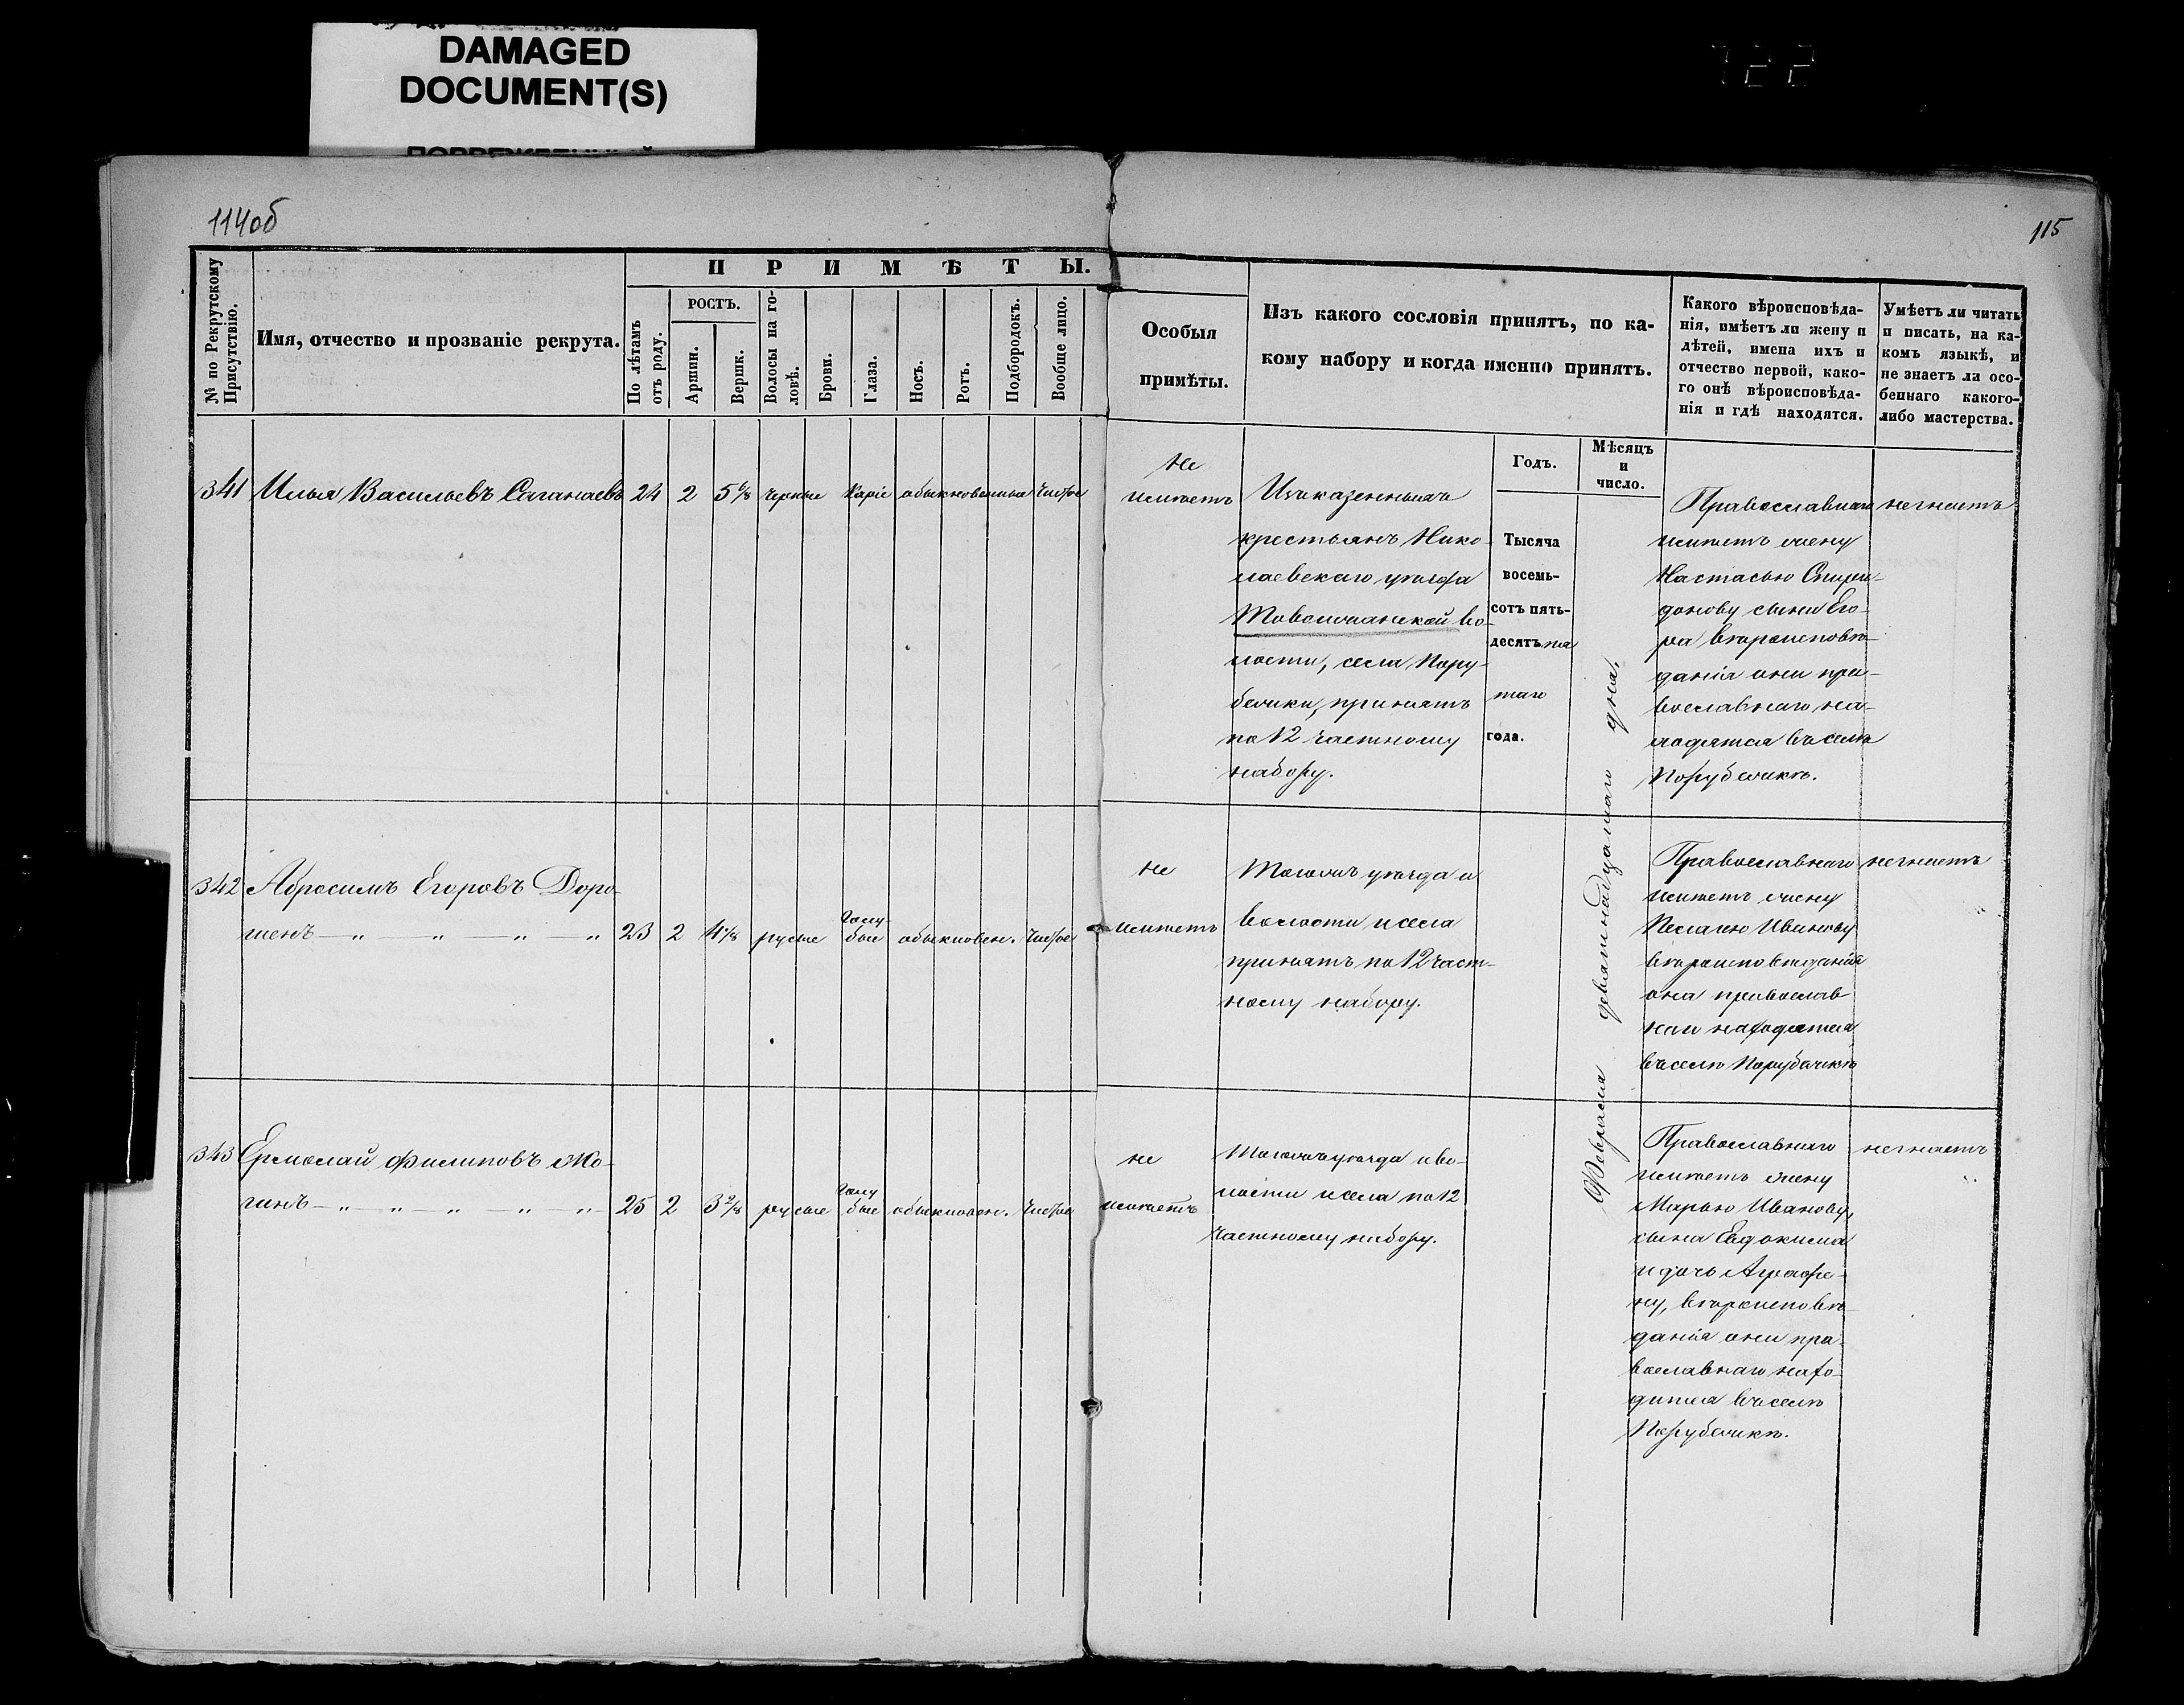 DAMAGED
DOCUMENT(S)
114об
115
ПРИМѢТЫ.
№ по Рекрутскому
Присутствію.
Имя, отчество и прозваніе рекрута.
По лѣтамъ
отъ роду.
РОСТЪ.
Аршин.
Вершк.
Волосы на го-
ловѣ.
Брови.
Глаза.
Носъ.
Ротъ.
Подбородокъ.
Вообще лицо.
Особыя
примѣты.
Изъ какого сословія принятъ, по ка-
кому набору и когда именно принятъ.
Годъ.
Мѣсяцъ
и
число.
Какого вѣроисповѣда-
нія, имѣетъ ли жену и
дѣтей, имена ихъ и
отчество первой, како-
го онѣ вѣроисповѣда-
нія и гдѣ находятся.
Умѣетъ ли читать
и писать, на ка-
комъ языкѣ, и
не знаетъ ли осо-
беннаго какого-
либо мастерства.
341 Илья Васильевъ 24 2 5 6/8 черные Каріе обыкновенные чистое
Не
имѣетъ
Изъ казенныхъ
крестьянъ Нико-
лаевскаго уѣзда
Товолжанской во-
лости, села Пору-
бежки, принятъ
по 12 частному
набору.
Тысяча
восемь-
сотъ пять-
десятъ пя
таго
года.
Февраля девятнадцатаго дня.
Православнаго
имѣетъ жену
Настасью Спири-
донову сына Его-
ра вѣроисповѣ-
данія они пра-
вославнаго на-
ходятся въ селѣ
Порубежкѣ.
незнаетъ
342 Абросимъ Егоровъ Доро-
шенъ 23 2 4 русые Голу-
бые обыкновен. чистое
не
имѣетъ
Тогожъ уѣзда и
волости и села
принятъ по 12 част-
ному набору.
Православнаго
имѣетъ жену
Пелагею Иванову
вѣроисповѣданія
она православ
наго находятся
въ селѣ Порубежкѣ
незнаетъ
343 Ермолай Филиповъ
25 2 3 2/8 русые Голу
бые обыкновен. чистое
не
имѣетъ
Тогожъ уѣзда и во-
лости и села по 12
частному набору.
Православнаго
имѣетъ жену
Марью Иванову,
сына Евдокима
и дочь Аграфе-
ну, вѣроисповѣ-
данія они пра-
вославнаго нахо-
дится въ селѣ
Порубежкѣ.
незнаетъ